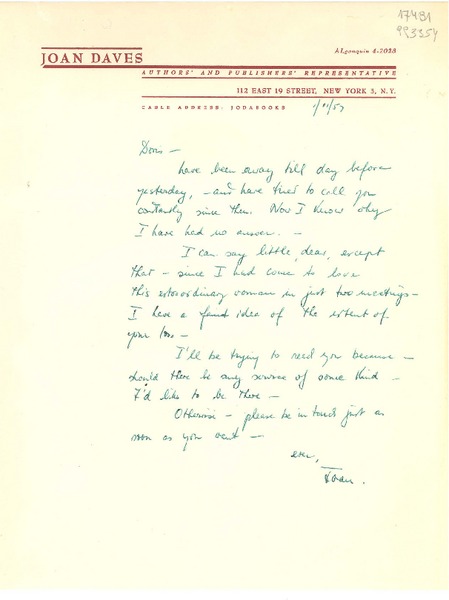 17481
993354
JOAN DAVES
ALgonquin 4-2028
AUTHORS' AND PUBLISHERS' REPRESENTATIVE
112 EAST 19 STREET, NEW YORK 3, N.Y.
CABLE ADDRESS: JODABOOKS
Doris —
have been away till day before
yesterday, — and have tried to call you
constantly since then. Now I know why
I have had no answer. —
I can say little, dear, except
that — since I had come to love
this extraordinary woman in just two meetings —
I have a faint idea of the extent of
your loss —
I'll be trying to reach you because —
should there be any service of some kind —
I'd like to be there —
Otherwise — please be in touch just as
soon as you want —
ever,
Joan.